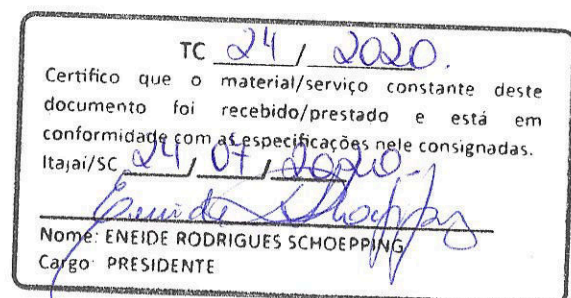 TC 24 / 2020.
Certifico que o material/serviço constante deste
documento foi recebido/prestado e está em
conformidade com as especificações nele consignadas.
Itajaí/SC, 24 / 07 / 2020.
Eneide Schoepping
Nome: ENEIDE RODRIGUES SCHOEPPING
Cargo PRESIDENTE